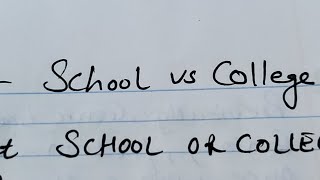 - School vs College
t SCHOOL OR COLLE